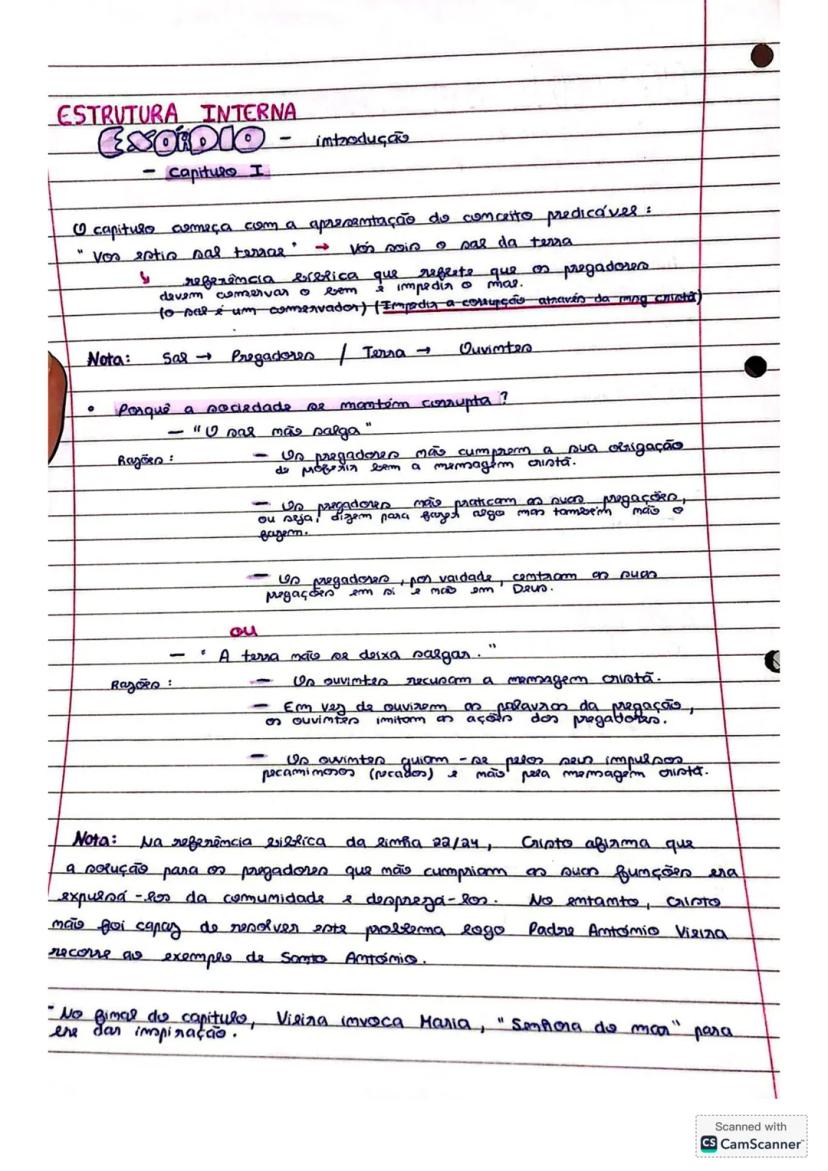 ESTRUTURA INTERNA
EXÓRDIO - introdução
- Capítulo I
O capítulo começa com a apresentação do conceito predicável:
"Vos estis sal terrae" → Vós sois o sal da terra
↳ referência bíblica que reflete que os pregadores
devem conservar o bem e impedir o mal.
(o sal é um conservador) (Impedir a corrupção através da msg cristã)
Nota: Sal → Pregadores / Terra → Ouvintes
• Porquê a sociedade se mantém corrupta?
- "O sal não salga"
Razões: - Os pregadores não cumprem a sua obrigação
de proferir bem a mensagem cristã.
- Os pregadores não praticam as suas pregações,
ou seja, dizem para fazer algo mas também não o
fazem.
- Os pregadores, por vaidade, centram as suas
pregações em si e não em Deus.
ou
- "A terra não se deixa salgar."
Razões: - Os ouvintes recusam a mensagem cristã.
- Em vez de ouvirem as palavras da pregação,
os ouvintes imitam as ações dos pregadores.
- Os ouvintes guiam-se pelos seus impulsos
pecaminosos (pecados) e não pela mensagem cristã.
Nota: Na referência bíblica da linha 22/24, Cristo afirma que
a solução para os pregadores que não cumpriam as suas funções era
expulsá-los da comunidade e desprezá-los. No entanto, Cristo
não foi capaz de resolver este problema logo Padre António Vieira
recorre ao exemplo de Santo António.
- No final do capítulo, Vieira invoca Maria, "Senhora do mar" para
lhe dar inspiração.
Scanned with
CS CamScanner